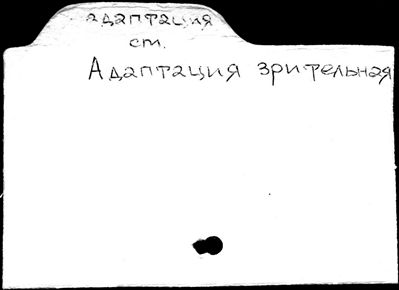 адаптация
ст.
Адаптация зрительная